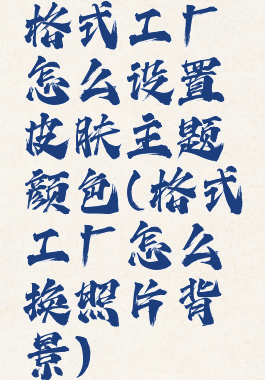 格式工厂
怎么设置
皮肤主题
颜色(格式
工厂怎么
换照片背
景)